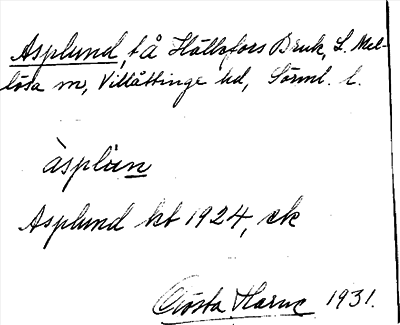 Asplund, få Hällefors Bruk, L. Mel-
lösa sn, Villåttinge hd, Sörml. l.
àsplun
Asplund kb 1924, ek
Gösta Harne 1931.